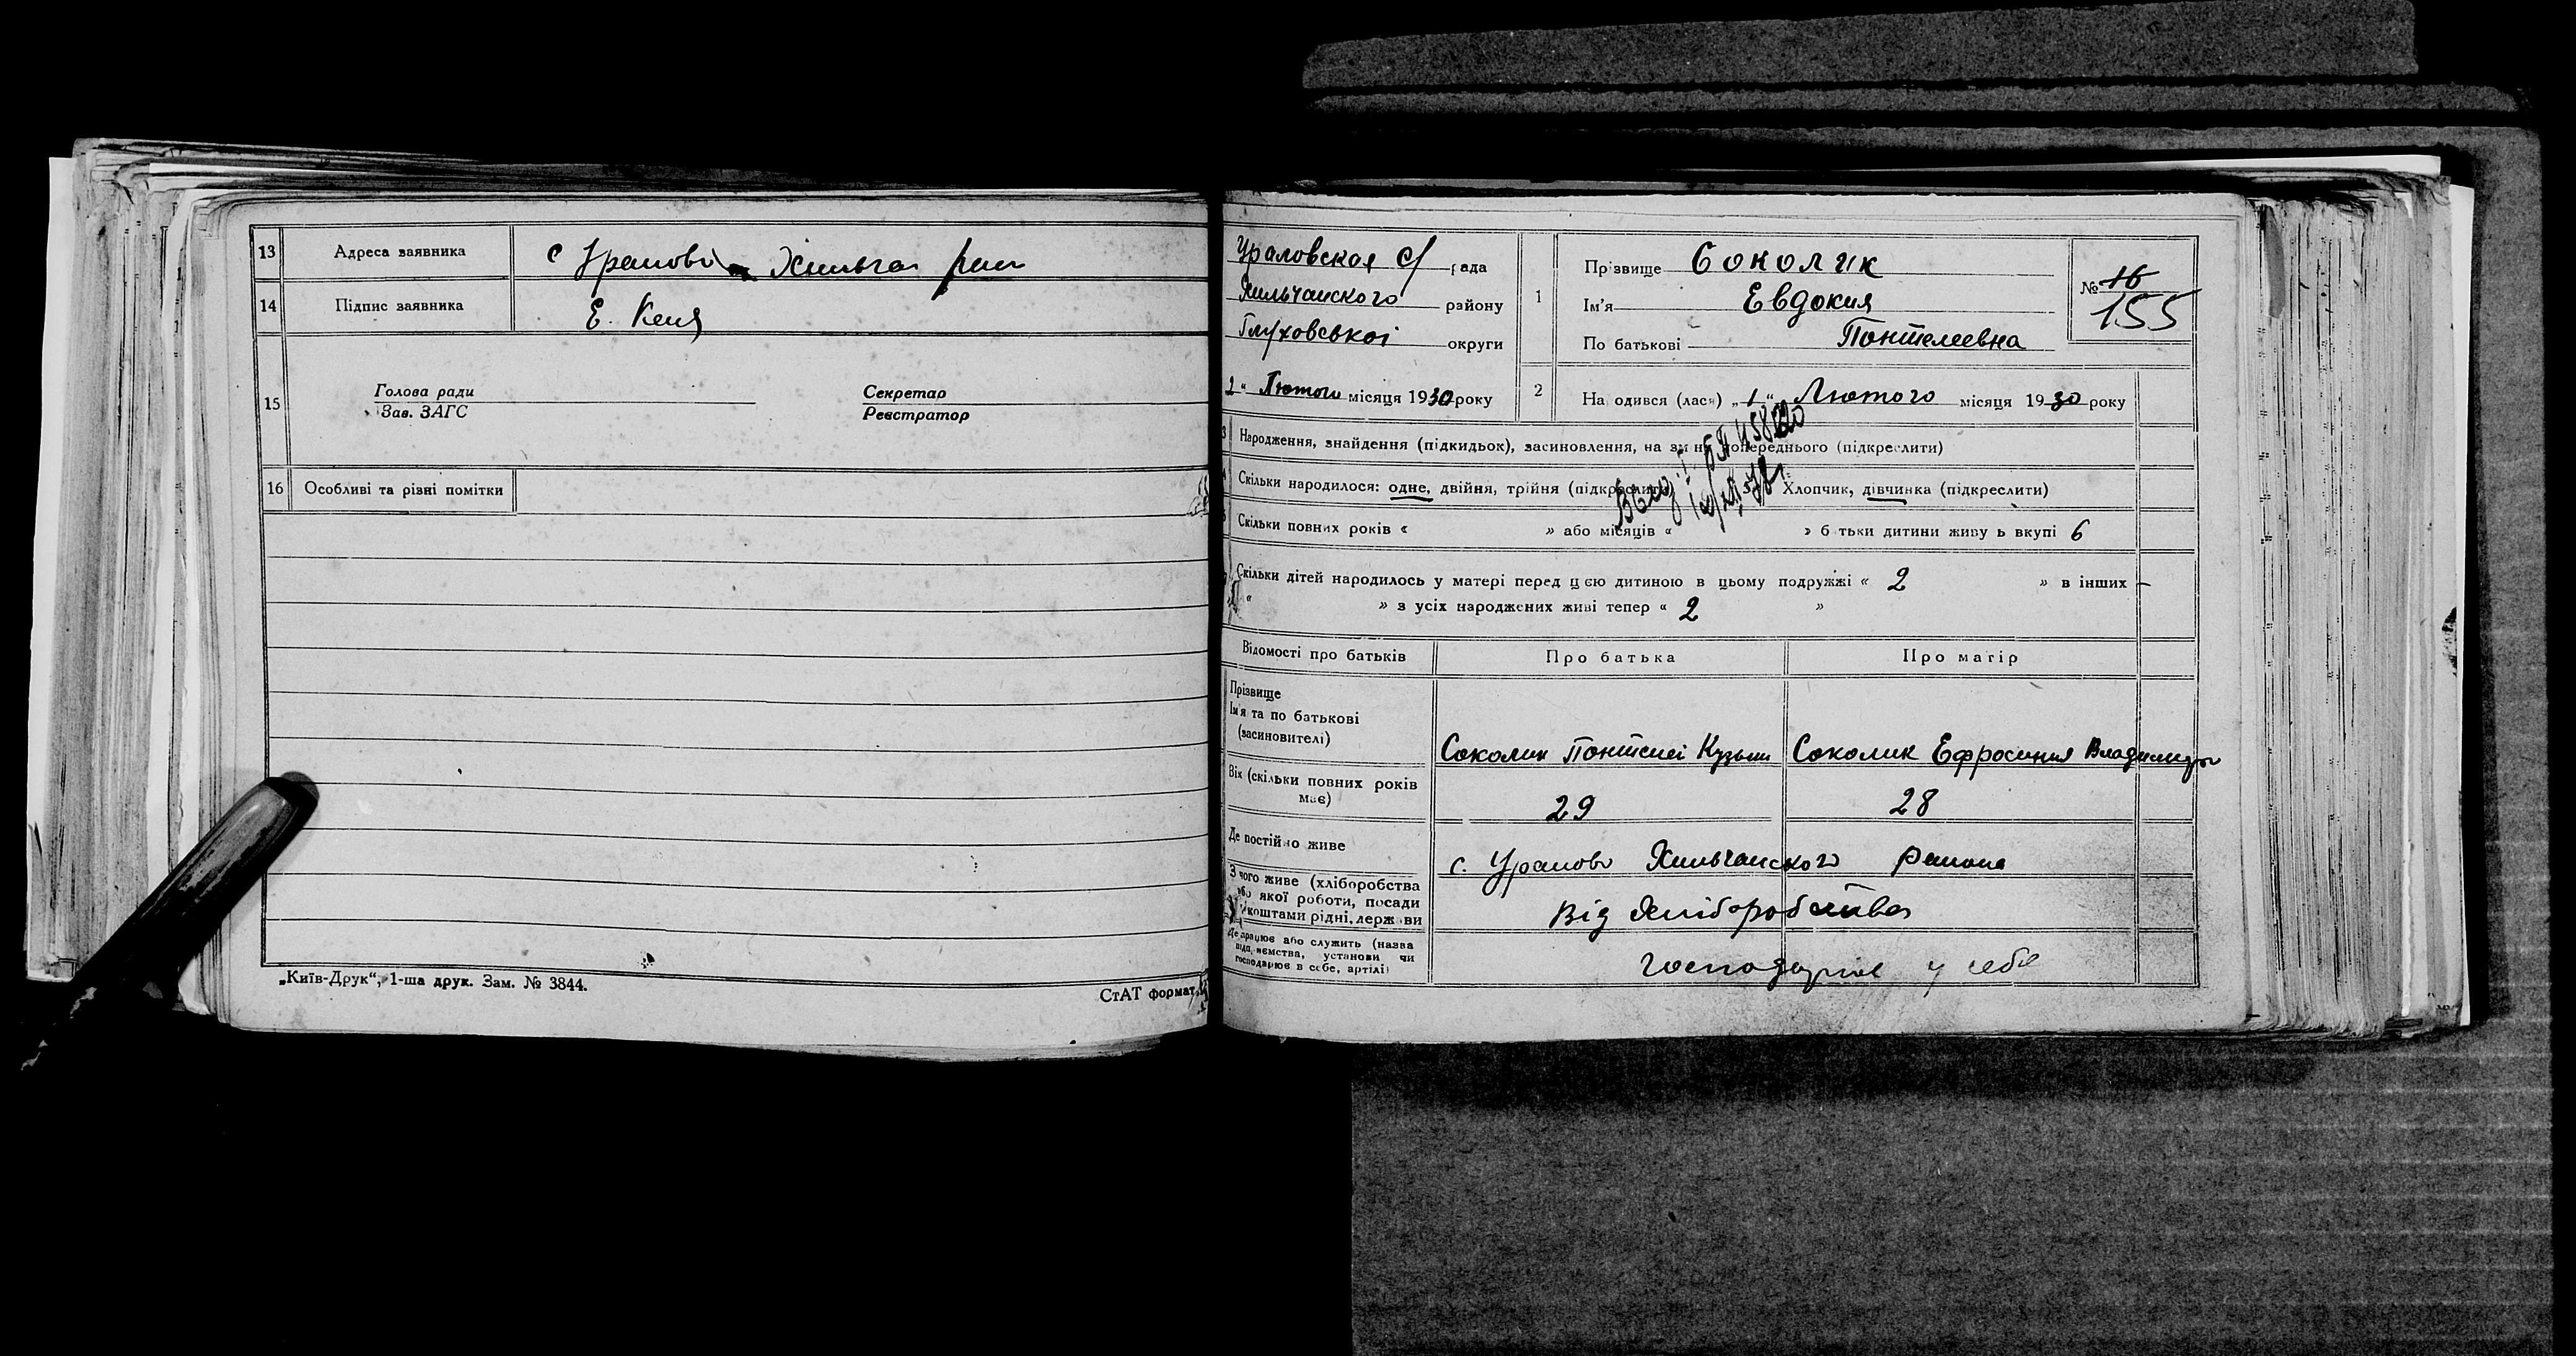 13 Адреса заявника с Уралово Хильчан рай
14 Підпис заявника Е. Кеня
15 Голова ради Секретар
Зав. ЗАГС Реєстратор
16 Особливі та різні помітки
„Київ-Друк“, 1-ша друк. Зам. № 3844.
СтАТ формат
Ураловская с/ рада
Хильчанского району
Глуховської округи
2 “ Лютого місяця 1930 року
1 Прізвище Соколик
Ім'я Евдокия
По батькові Понтелеевна
№ 16
155
2 На одився (лася) „1“ Лютого місяця 1930 року
Народження, знайдення (підкидьок), засиновлення, на зміну попереднього (підкреслити)
Скільки народилося: одне, двійня, трійня (підкреслити) Хлопчик, дівчинка (підкреслити)
Скільки повних років « » або місяців « » батьки дитини живуть вкупі 6
Скільки дітей народилось у матері перед цією дитиною в цьому подружжі « 2 » в інших –
« » з усіх народжених живі тепер « 2 »
Відомості про батьків Про батька Про матір
Прізвище
Ім'я та по батькові
(засиновителі)
Соколик Понтелеі Кузьми Соколик Ефросиния Владимиры
Вік (скільки повних років
має)
29 28
Де постійно живе с. Уралово Хильчанского района
З чого живе (хліборобства
або якої роботи, посади
коштами рідні, держави
Від Хліборобства
Де працює або служить (назва
підприємства, установи чи
господарює в себе, артілі)
господарює у себе